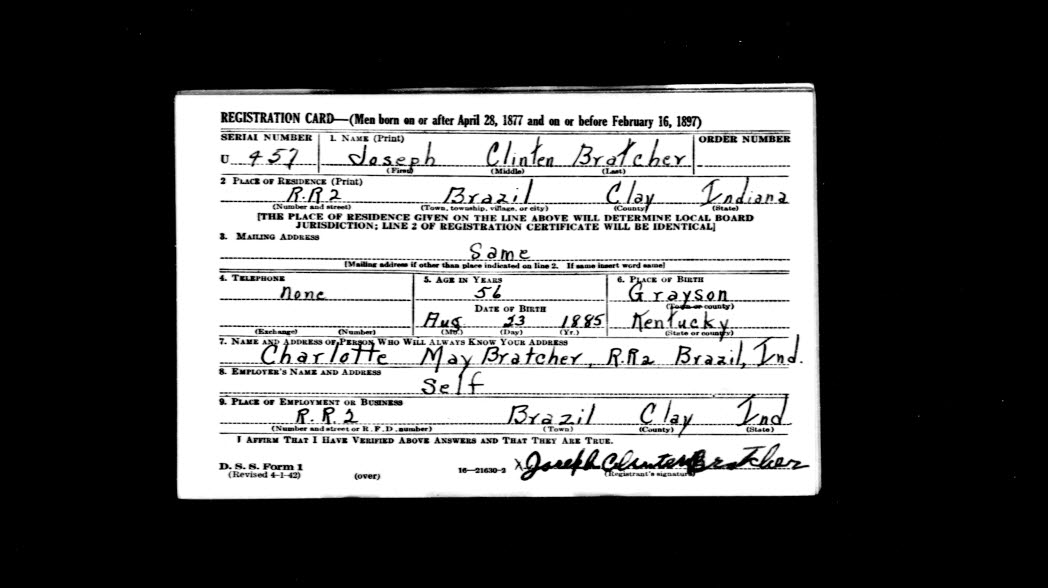 REGISTRATION CARD—(Men born on or after April 28, 1877 and on or before February 16, 1897)
SERIAL NUMBER 1. NAME (Print) ORDER NUMBER
U 457 Joseph Clinten Bratcher
(First) (Middle) (Last)
2 PLACE OF RESIDENCE (Print)
R.R 2 Brazil Clay Indiana
(Number and street) (Town, township, village, or city) (County) (State)
[THE PLACE OF RESIDENCE GIVEN ON THE LINE ABOVE WILL DETERMINE LOCAL BOARD
JURISDICTION; LINE 2 OF REGISTRATION CERTIFICATE WILL BE IDENTICAL]
3. MAILING ADDRESS
Same
[Mailing address if other than place indicated on line 2. If same insert word same]
4. TELEPHONE 5. AGE IN YEARS 6. PLACE OF BIRTH
none 56 Grayson
DATE OF BIRTH (Town or county)
Aug 23 1885 Kentucky
(Exchange) (Number) (Mo.) (Day) (Yr.) (State or country)
7. NAME AND ADDRESS OF PERSON WHO WILL ALWAYS KNOW YOUR ADDRESS
Charlotte May Bratcher, R.R2 Brazil, Ind.
8. EMPLOYER'S NAME AND ADDRESS
Self
9. PLACE OF EMPLOYMENT OR BUSINESS
R.R.2 Brazil Clay Ind
(Number and street or R.F.D. number) (Town) (County) (State)
I AFFIRM THAT I HAVE VERIFIED ABOVE ANSWERS AND THAT THEY ARE TRUE.
D. S. S. Form 1 16—21630-2 X Joseph Clinten Bratcher
(Revised 4-1-42) (over) (Registrant's signature)